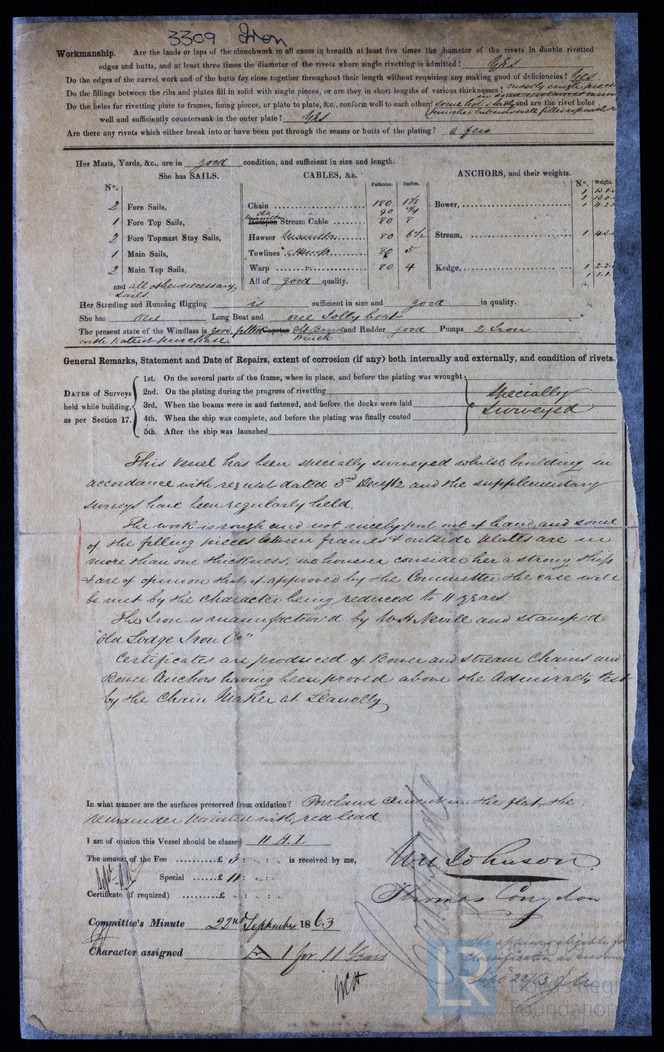 3309 Iron
Workmanship. Are the lands or laps of the clenchwork in all cases in breadth at least five times the diameter of the rivets in double rivetted
edges and butts, and at least three times the diameter of the rivets where single rivetting is admitted? Yes
Do the edges of the carvel work and of the butts fay close together throughout their length without requiring any making good of deficiencies? Yes
Do the fillings between the ribs and plates fill in solid with single pieces, or are they in short lengths of various thicknesses? mostly single pieces
Do the holes for rivetting plate to frames, lining pieces, or plate to plate, &c., conform well to each other? some holes and are the rivet holes
well and sufficiently countersunk in the outer plate? Yes
Are there any rivets which either break into or have been put through the seams or butts of the plating? a few
Her Masts, Yards, &c., are in good condition, and sufficient in size and length.
She has SAILS. CABLES, &c. ANCHORS, and their weights.
N°. Fathoms. Inches. N°. Weight.
2 Fore Sails, Chain 180 Bower, 1
1 Fore Top Sails, Stream Cable 80 8
2 Fore Topmast Stay Sails, Hawser Manilla 80 6½ Stream, 1
1 Main Sails, Towlines 80 5
2 Main Top Sails, Warp 80 4 Kedge, 1
and all other necessary All of good quality.
Sails.
Her Standing and Running Rigging is sufficient in size and good in quality.
She has one Long Boat and one Jolly boat
The present state of the Windlass is good, fitted and Rudder good Pumps 2 Iron
with Patent Purchase. Winch
General Remarks, Statement and Date of Repairs, extent of corrosion (if any) both internally and externally, and condition of rivets.
DATES of Surveys held while building, as per Section 17.
1st. On the several parts of the frame, when in place, and before the plating was wrought
2nd. On the plating during the progress of rivetting
3rd. When the beams were in and fastened, and before the decks were laid
4th. When the ship was complete, and before the plating was finally coated
5th. After the ship was launched
Specially
Surveyed
This Vessel has been specially surveyed whilst building in
accordance with request dated 3rd Dec/62 and the supplementary
surveys have been regularly held.
The work is rough and not nicely put out of hand, and some
of the filling pieces between frames & outside Platts are in
more than one thickness, we however consider her a strong ship
& are of opinion that if approved by the Committee the case will
be met by the character being reduced to 11 years
The Iron is manufactured by W. H. Nevill and stamped
"Old Lodge Iron Co"
Certificates are produced of Bower and Stream Chains and
Bower Anchors having been proved above the Admiralty test
by the Chain Maker at Llanelly
In what manner are the surfaces preserved from oxidation? Portland Cement in the flat, the
remainder painted with red lead.
I am of opinion this Vessel should be classed 11 A.1.
The amount of the Fee .......... £ 5 : : is received by me,
Special ...... £ 11 : :
Certificate (if required) ....... £ : :
Wm Johnson.
Thomas Congdon
Committee's Minute 22nd September 1863
Character assigned A 1 for 11 Years
LR
Foundation